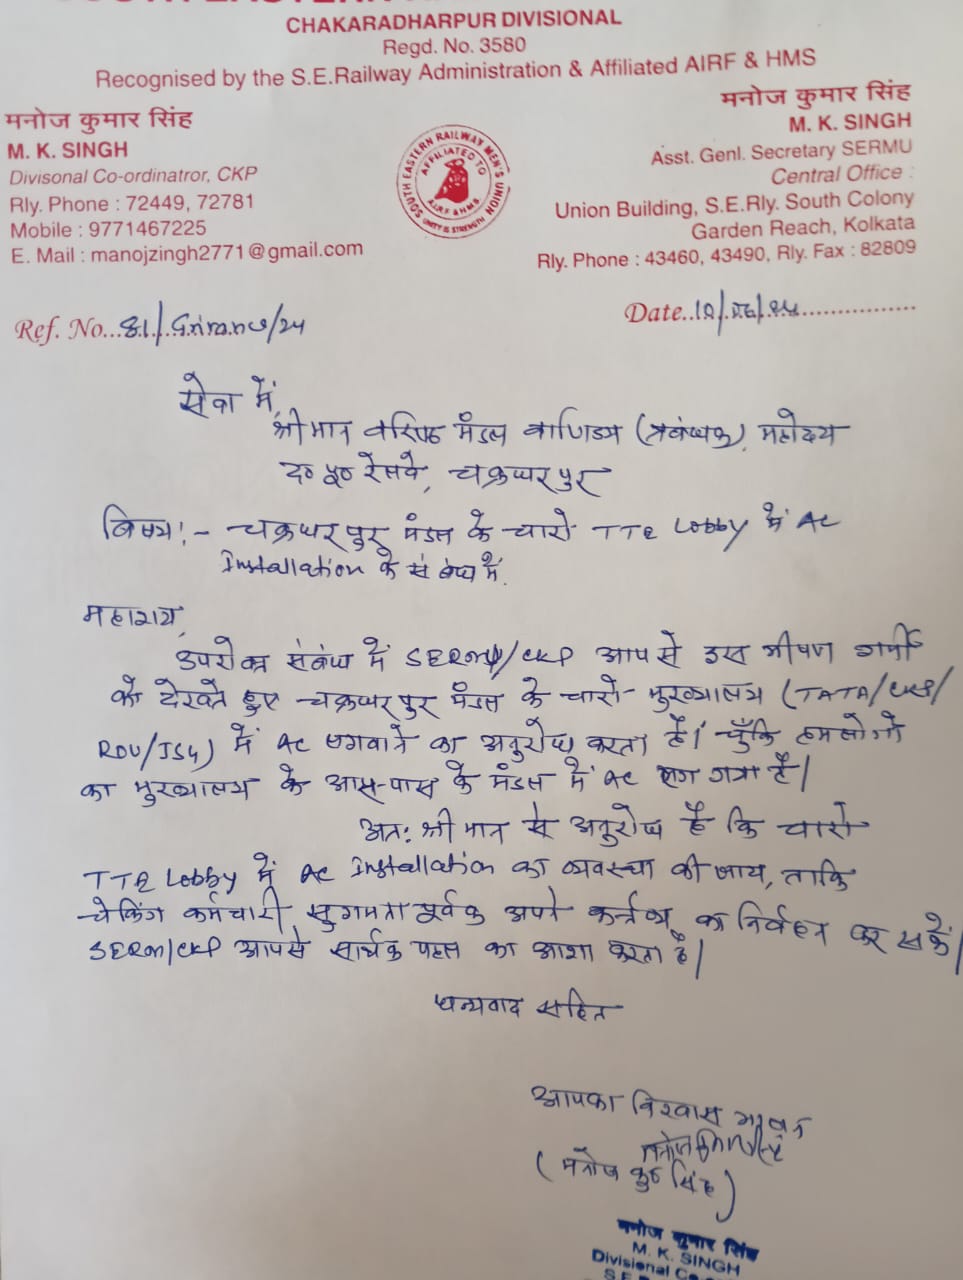 CHAKARADHARPUR DIVISIONAL
Regd. No. 3580
Recognised by the S.E.Railway Administration & Affiliated AIRF & HMS
मनोज कुमार सिंह
M. K. SINGH
Divisonal Co-ordinatror, CKP
Rly. Phone : 72449, 72781
Mobile : 9771467225
E. Mail : manojzingh2771@gmail.com
SOUTH EASTERN RAILWAY MEN'S UNION
AFFILIATED TO
AIRF & HMS
UNITY IS STRENGTH
मनोज कुमार सिंह
M. K. SINGH
Asst. Genl. Secretary SERMU
Central Office :
Union Building, S.E.Rly. South Colony
Garden Reach, Kolkata
Rly. Phone : 43460, 43490, Rly. Fax : 82809
Ref. No...81/Grirance/24
Date..
सेवा में,
श्रीमान वरिष्ठ मंडल वाणिज्य (प्रबंधक), महोदय
द० पू० रेलवे, चक्रधरपुर
विषय:- चक्रधरपुर मंडल के चारो TTE Lobby में AC
Installation के संबंध में.
महाशय,
उपरोक्त संबंध में SERMU/CKP आपसे इस भीषण गर्मी
को देखते हुए चक्रधरपुर मंडल के चारो मुख्यालय (TATA/CKP/
ROU/JSG) में AC लगवाने का अनुरोध करता है। चुँकि हमलोगो
का मुख्यालय के आस-पास के मंडल में AC लग गया है।
अत: श्रीमान से अनुरोध है कि चारो
TTE Lobby में AC Installation का व्यवस्था की जाय, ताकि
चेकिंग कर्मचारी सुगमता पूर्वक अपने कर्त्तव्य का निर्वहन कर सकें।
SERMU/CKP आपसे सार्थक पहल का आशा करता है।
धन्यवाद सहित
आपका विश्वास भाजन
(मनोज कु० सिंह)
मनोज कुमार सिंह
M. K. SINGH
Divisional